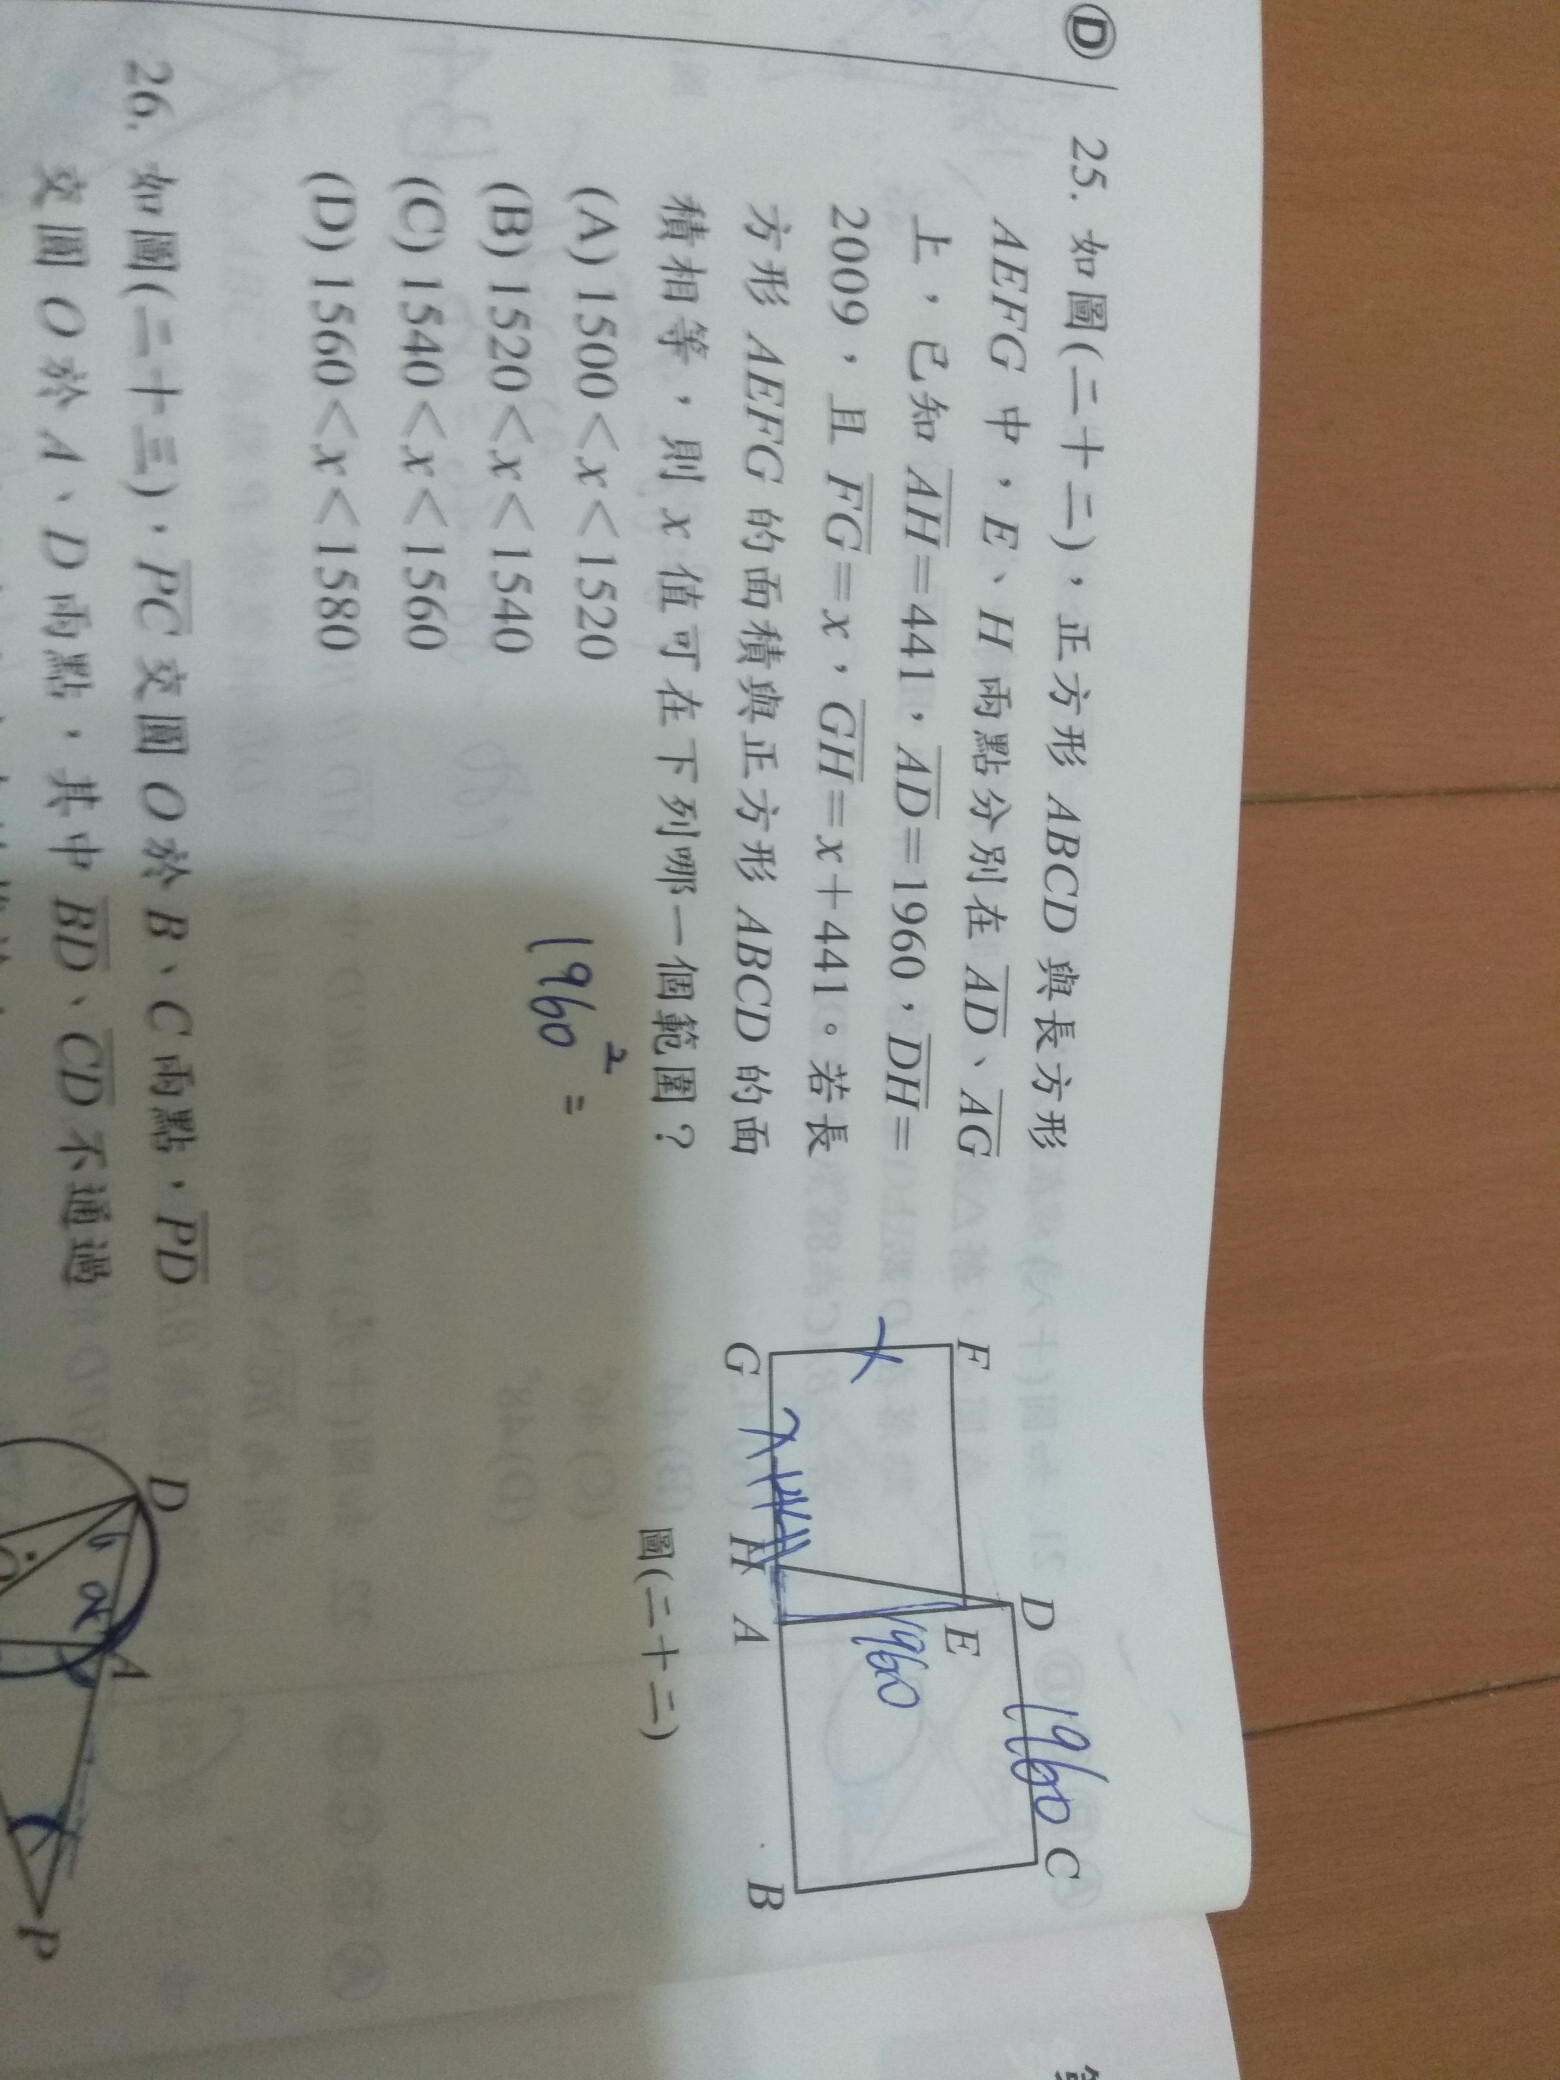 D
25. 如圖(二十二)，正方形 ABCD 與長方形
AEFG 中，E、H 兩點分別在 AD、AG
上，已知 AH=441，AD=1960，DH=
2009，且 FG=x，GH=x+441。若長
方形 AEFG 的面積與正方形 ABCD 的面
積相等，則 x 值可在下列哪一個範圍？
(A) 1500<x<1520
(B) 1520<x<1540
(C) 1540<x<1560
(D) 1560<x<1580
1960² =
F
D
1960
C
E
1960
G
H
A
B
圖(二十二)
26. 如圖(二十三)，PC 交圓 O 於 B、C 兩點，PD
交圓 O 於 A、D 兩點，其中 BD、CD 不通過
D
A
P